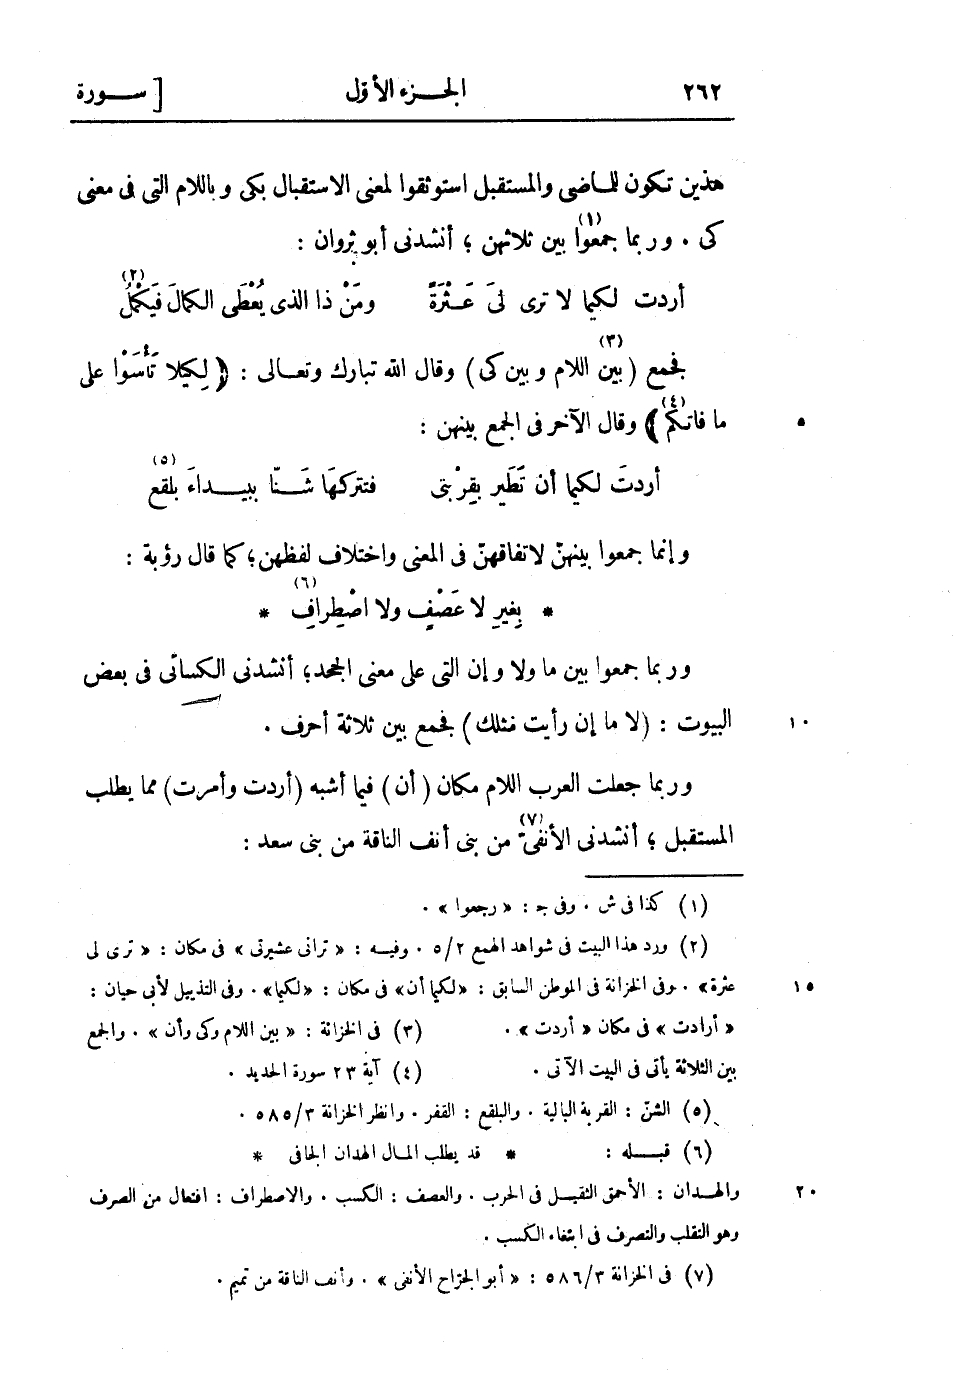 ٢٦٢ الجزء الأوّل [ سورة
هذين تكون للماضى والمستقبل استوثقوا لمعنى الاستقبال بكى وباللام التى فى معنى
كى . وربما جمعوا (١) بين ثلاثهن ؛ أنشدنى أبو ثروان :
أردت لكيما لا ترى لىَ عَثْرَةً ومَنْ ذا الذى يُعْطَى الكمالَ فيَكْمُلُ (٢)
فجمع ( بين اللام وبين كى ) (٣) وقال الله تبارك وتعالى : ﴿ لِكيلا تَأْسَوْا على
٥ ما فاتكم ﴾ (٤) وقال الآخر فى الجمع بينهن :
أردتَ لكيما أن تَطَير بقِرْبتى فتتركهَا شَنّا ببيداءَ بلقع (٥)
وإنما جمعوا بينهنّ لاتفاقهنّ فى المعنى واختلاف لفظهن ؛ كما قال رؤبة :
* بِغيرِ لا عَصْفٍ ولا اصْطِرافِ (٦) *
وربما جمعوا بين ما ولا وإن التى على معنى الجحد ؛ أنشدنى الكسائى فى بعض
١٠ البيوت : (لا ما إن رأيت مثلك) فجمع بين ثلاثة أحرف .
وربما جعلت العرب اللام مكان ( أن ) فيما أشبه (أردت وأمرت) مما يطلب
المستقبل ؛ أنشدنى الأنفىّ (٧) من بنى أنف الناقة من بنى سعد :
(١) كذا فى ش . وفى ج : « رجعوا » .
(٢) ورد هذا البيت فى شواهد الهمع ٥/٢ . وفيه : « ترانى عشيرتى » فى مكان : « ترى لى
١٥ عثرة» . وفى الخزانة فى الموطن السابق : «لكيما أن» فى مكان : «لكيما» . وفى التذييل لأبى حيان :
« أرادت » فى مكان « أردت » . (٣) فى الخزانة : « بين اللام وكى وأن » . والجمع
بين الثلاثة يأتى فى البيت الآتى . (٤) آية ٢٣ سورة الحديد .
(٥) الشنّ : القربة البالية . والبلقع : القفر . وانظر الخزانة ٥٨٥/٣ .
(٦) قبله : * قد يطلب المال الهدان الجافى *
٢٠ والهدان : الأحمق الثقيل فى الحرب . والعصف : الكسب . والاصطراف : افتعال من الصرف
وهو التقلب والتصرف فى ابتغاء الكسب .
(٧) فى الخزانة ٥٨٦/٣ : « أبو الجرّاح الأنفى » . وأنف الناقة من تميم .